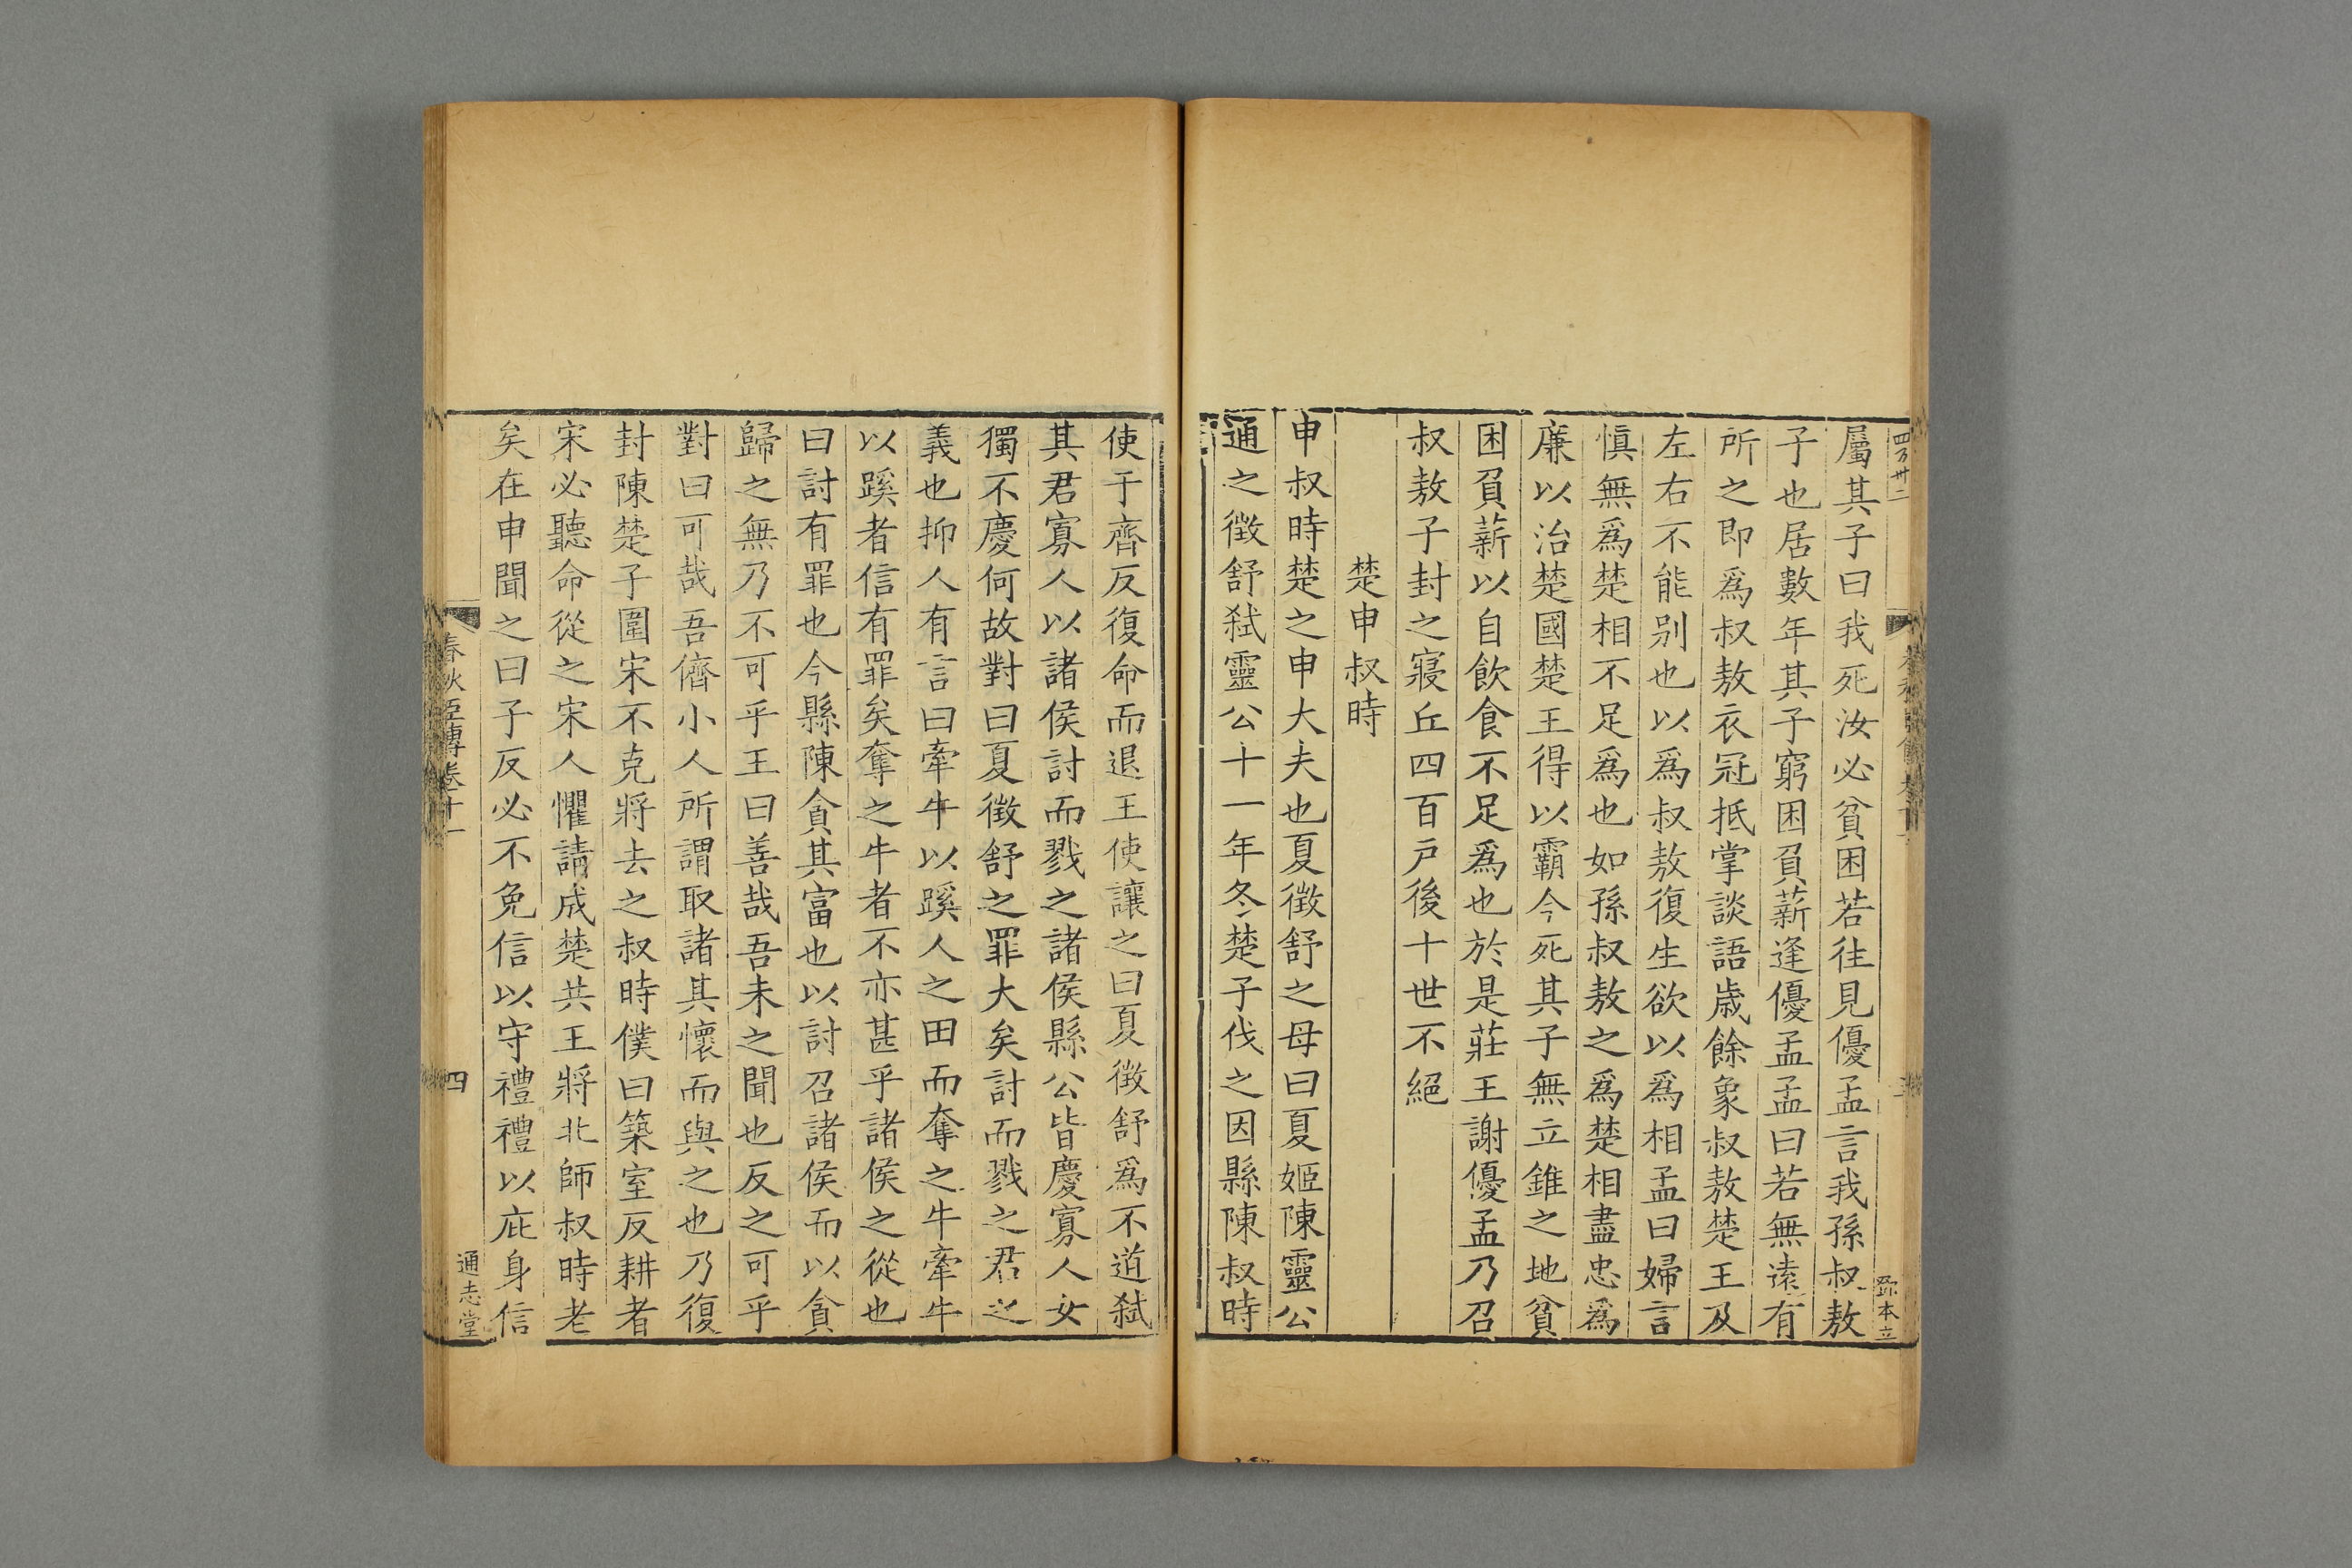 屬其子曰我死汝必貧困若往見優孟言我孫叔敖
子也居數年其子窮困負薪逢優孟孟曰若無遠有
所之即爲叔敖衣冠抵掌談語歲餘象叔敖楚王及
左右不能别也以爲叔敖復生欲以爲相孟曰婦言
慎無爲楚相不足爲也如孫叔敖之爲楚相盡忠爲
廉以治楚國楚王得以霸今死其子無立錐之地貧
困負薪以自飲食不足爲也於是莊王謝優孟乃召
叔敖子封之寢丘四百戸後十世不絕
楚申叔時
申叔時楚之申大夫也夏徴舒之母曰夏姬陳靈公
通之徴舒弑靈公十一年冬楚子伐之因縣陳叔時
使于齊反復命而退王使讓之曰夏徴舒爲不道弑
其君寡人以諸侯討而戮之諸侯縣公皆慶寡人女
獨不慶何故對曰夏徴舒之罪大矣討而戮之君之
義也抑人有言曰牽牛以蹊人之田而奪之牛牽牛
以蹊者信有罪矣奪之牛者不亦甚乎諸侯之從也
曰討有罪也今縣陳貪其富也以討召諸侯而以貪
歸之無乃不可乎王曰善哉吾未之聞也反之可乎
對曰可哉吾儕小人所謂取諸其懷而與之也乃復
封陳楚子圍宋不克將去之叔時僕曰築室反耕者
宋必聽命從之宋人懼請成楚共王將北師叔時老
矣在申聞之曰子反必不免信以守禮禮以庇身信
春秋臣傳卷十一
四
通志堂